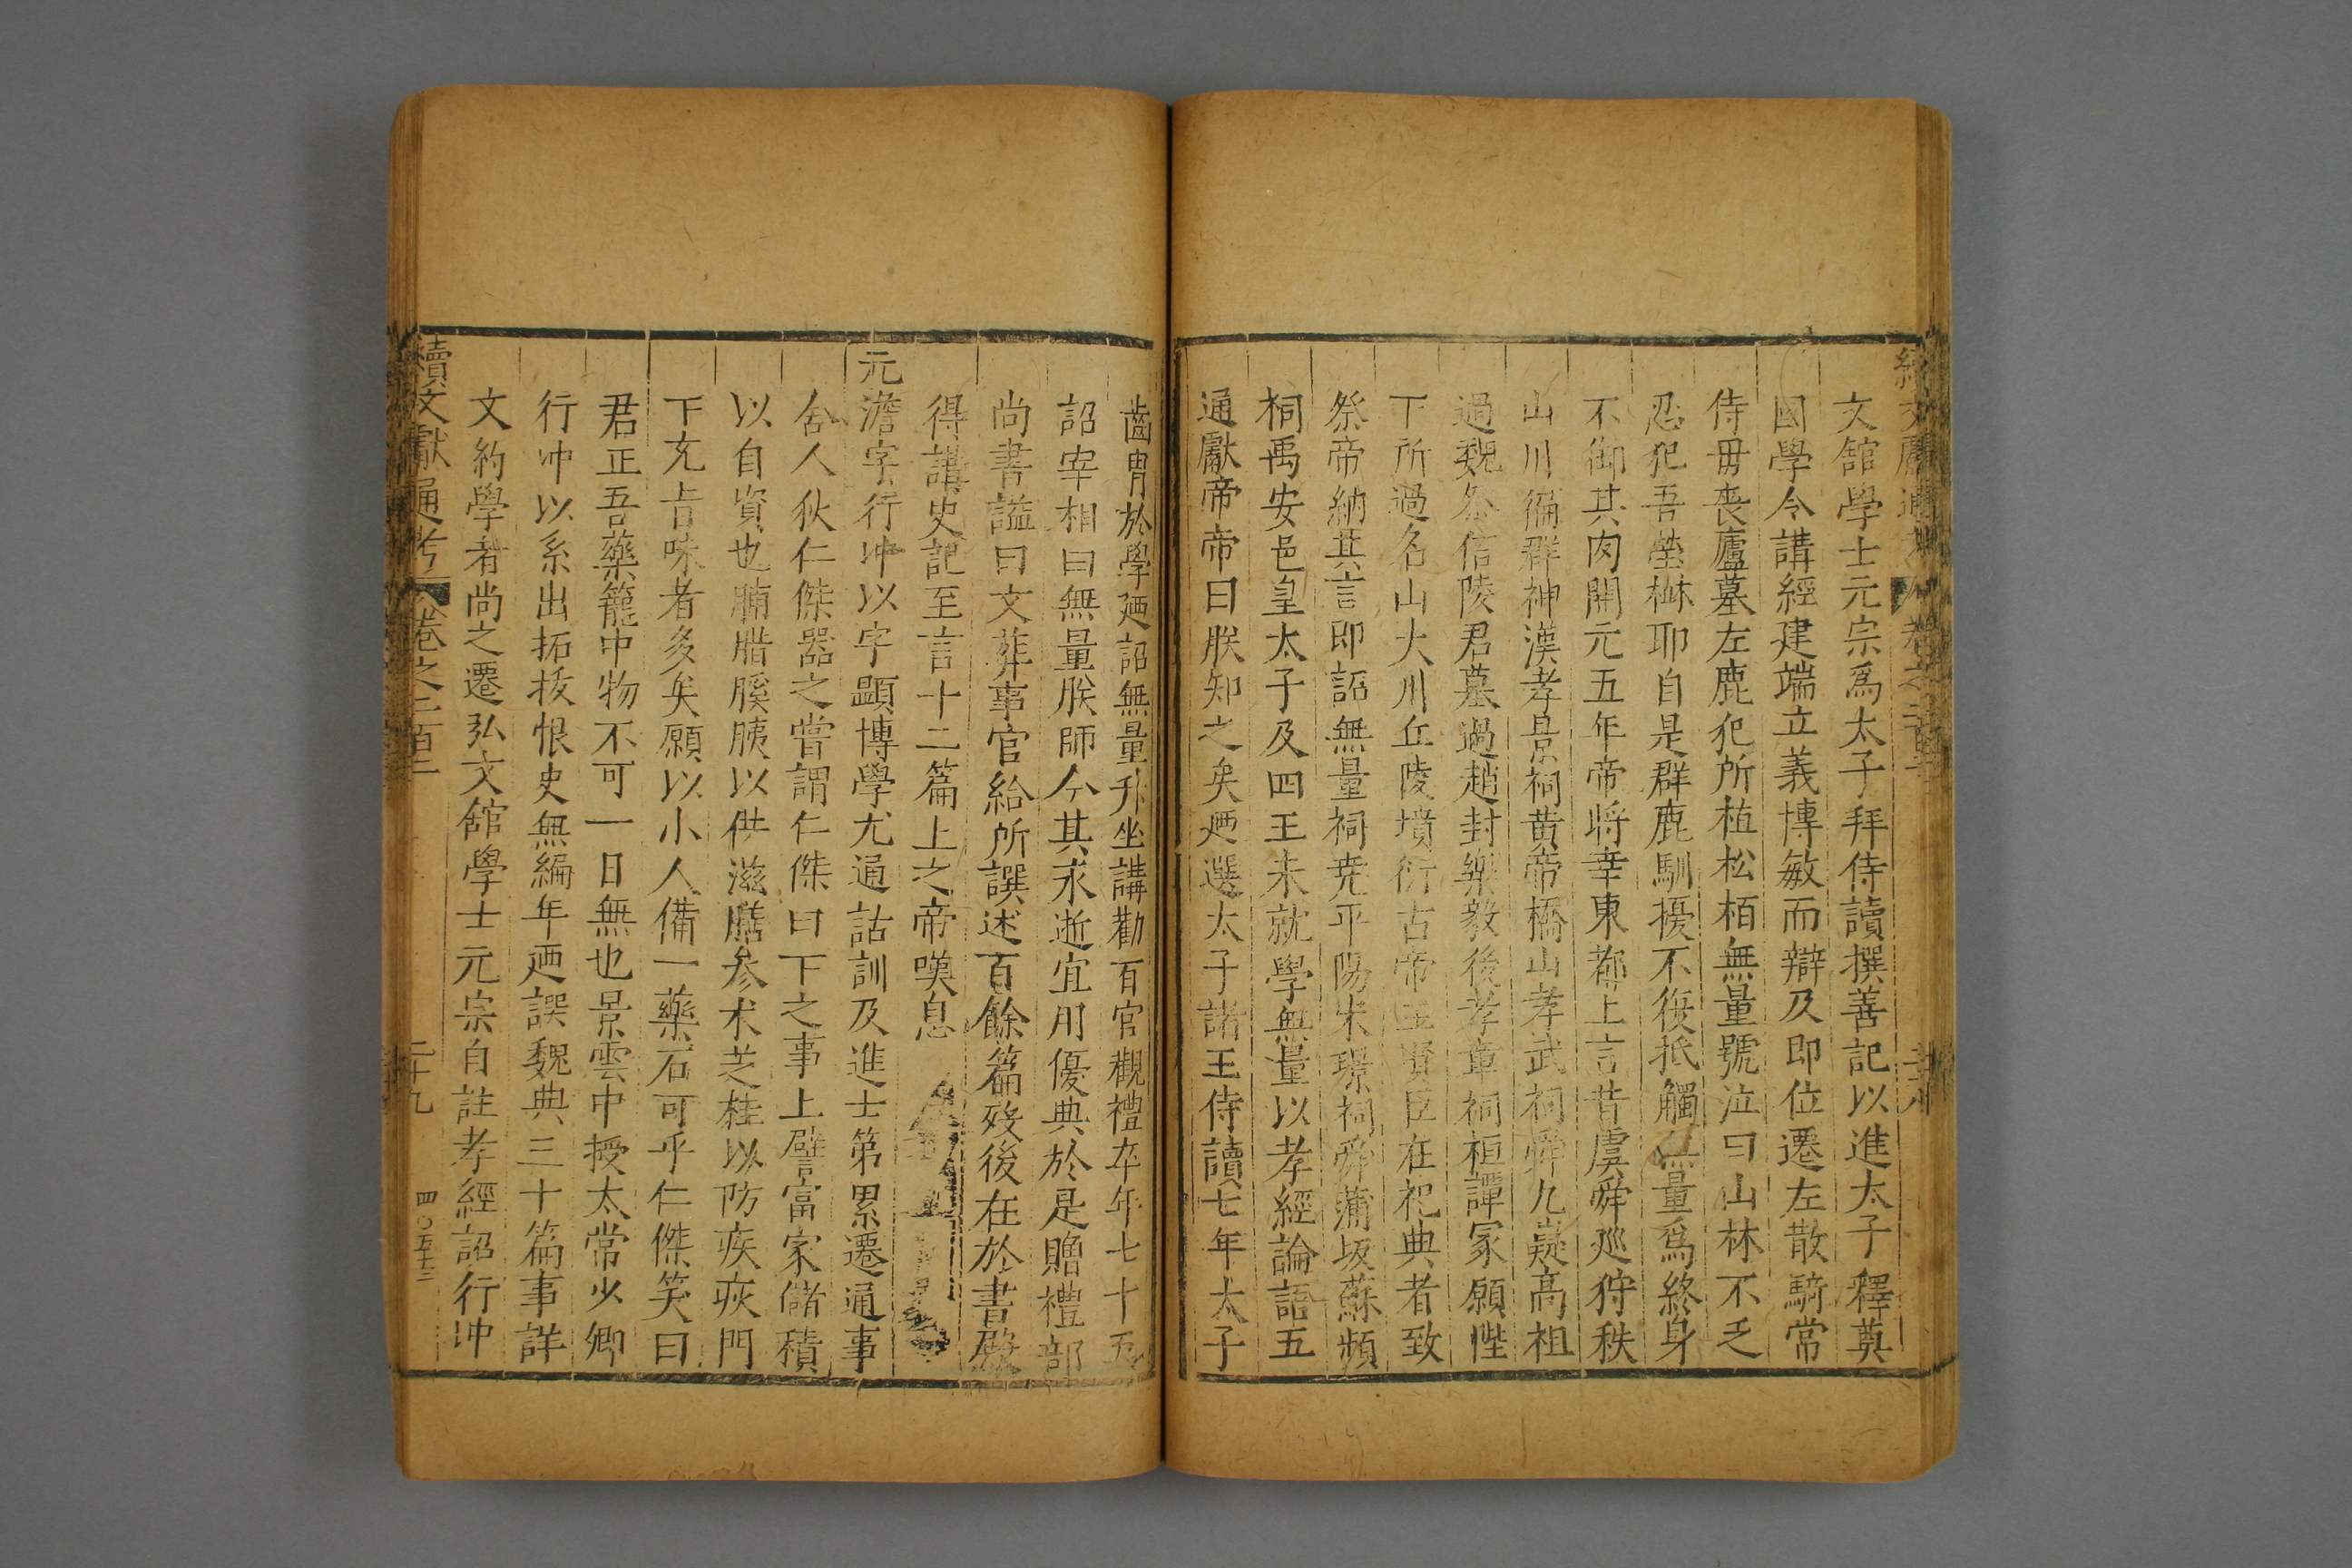 文館學士元宗爲太子拜侍讀撰善記以進太子釋奠
國學令講經建端立義博敏而辯及即位遷左散騎常
侍毋喪廬墓左鹿犯所植松栢無量號泣曰山林不乏
忍犯吾塋樹耶自是群鹿馴擾不復抵觸無量爲終身
不御其肉開元五年帝將幸東都上言昔虞舜廵狩秩
山川徧群神漢孝景祠黄帝橋山孝武祠舜九嶷高祖
過魏祭信陵君墓過趙封樂毅後孝章祠桓譚冢願陛
下所過名山大川丘陵墳衍古帝王賢臣在祀典者致
祭帝納其言即詔無量祠堯平陽宋璟祠舜蒲坂蘇頻
祠禹安邑皇太子及四王未就學無量以孝經論語五
通獻帝帝曰朕知之矣廼選太子諸王侍讀七年太子
齒胄於學廼詔無量升坐講勸百官觀禮卒年七十五
詔宰相曰無量朕師今其永逝宜用優典於是贈禮部
尚書謚曰文葬事官給所譔述百餘篇殁後在於書殿
得講史記至言十二篇上之帝嘆息
元澹字行冲以字顯博學尤通詁訓及進士第累遷通事
舍人狄仁傑器之嘗謂仁傑曰下之事上譬富家儲積
以自資也脯腊膎胰以供滋膳参术芝桂以防疾疢門
下充旨味者多矣願以小人備一藥石可乎仁傑笑曰
君正吾藥籠中物不可一日無也景雲中授太常少卿
行冲以系出拓拔恨史無編年廼譔魏典三十篇事詳
文約學者尚之遷弘文館學士元宗自註孝經詔行冲
續文獻通考 卷之二百二 二十九 四〇五十二